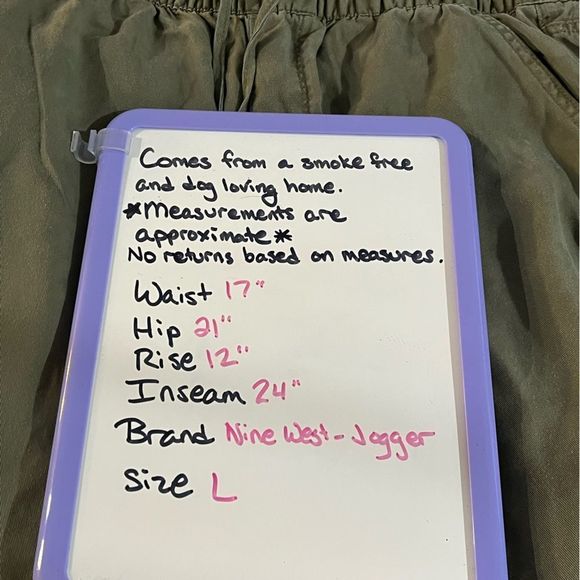 Comes from a smoke free
and dog loving home.
*Measurements are
approximate*
No returns based on measures.
Waist 17"
Hip 21"
Rise 12"
Inseam 24"
Brand Nine West - Jogger
Size L